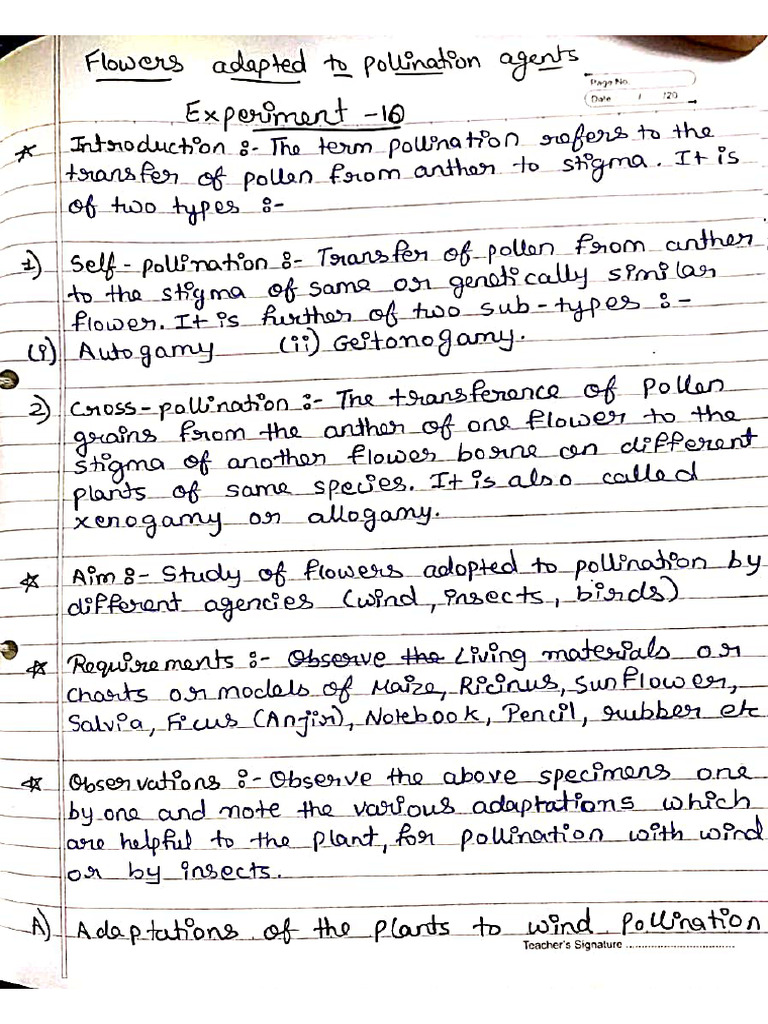 Flowers adapted to pollination agents
Page No.
Date / /20
Experiment -10
* Introduction :- The term pollination refers to the
transfer of pollen from anther to stigma. It is
of two types :-
1) Self-pollination :- Transfer of pollen from anther
to the stigma of same or genetically similar
flower. It is further of two sub-types :-
(i) Autogamy (ii) Geitonogamy.
2) Cross-pollination :- The transference of pollen
grains from the anther of one flower to the
stigma of another flower borne on different
plants of same species. It is also called
xenogamy or allogamy.
* Aim :- Study of flowers adopted to pollination by
different agencies (wind, insects, birds)
* Requirements :- Observe the Living materials or
charts or models of Maize, Ricinus, Sunflower,
Salvia, Ficus (Anjir), Notebook, Pencil, rubber etc
* Observations :- Observe the above specimens one
by one and note the various adaptations which
are helpful to the plant, for pollination with wind
or by insects.
A) Adaptations of the plants to wind Pollination
Teacher's Signature